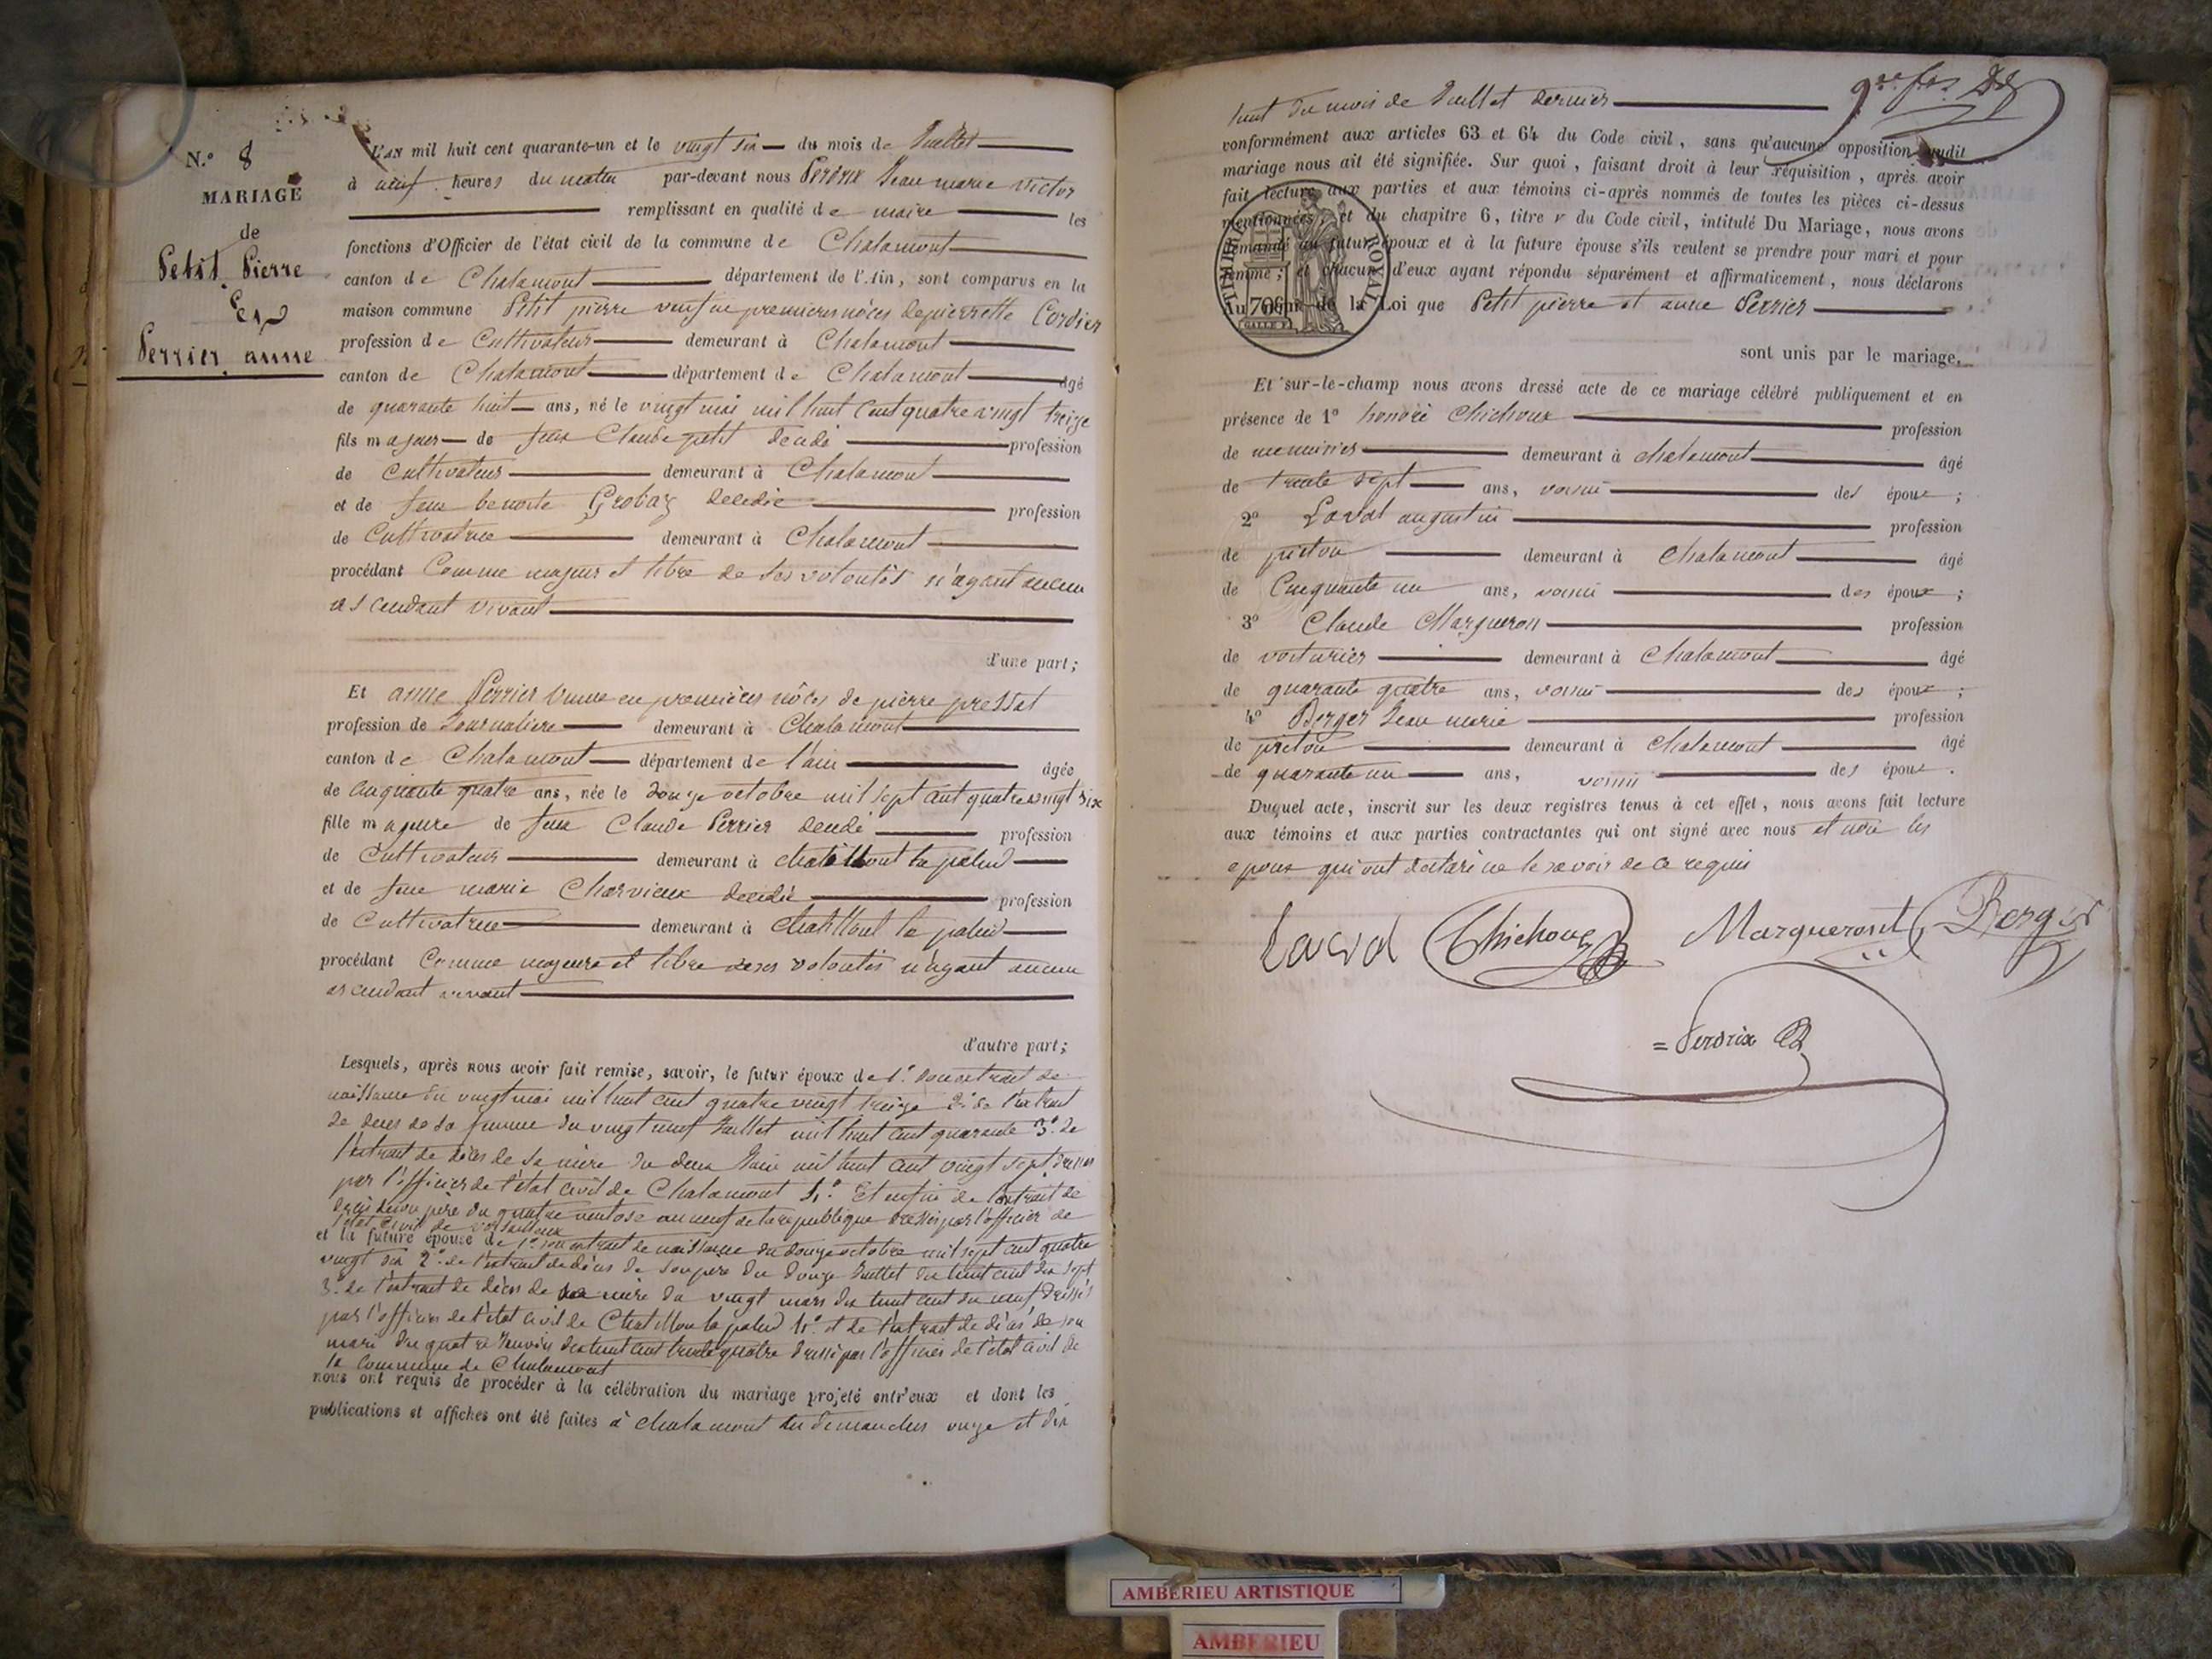 N.º 8
MARIAGE
de
Petit Pierre
Et
Perrier anne
L'AN mil huit cent quarante-un et le vingt six du mois de Juillet
à neuf heures du matin par-devant nous Perdrix Jean marie victor
remplissant en qualité de maire les
fonctions d'Officier de l'état civil de la commune de Chalamont
canton de Chalamont département de l'Ain, sont comparus en la
maison commune Petit pierre veuf en premieres nôces de pierrette Cordier
profession de Cultivateur demeurant à Chalamont
canton de Chalamont département de Chalamont âgé
de quarante huit ans, né le vingt mai mil huit Cent quatre vingt treize
fils majeur de feu Claude petit décédé profession
de Cultivateur demeurant à Chalamont
et de feue benoite Grobaz décédée profession
de Cultivatrice demeurant à Chalamont
procédant Comme majeur et libre de ses volontés n'ayant aucun
ascendant vivant
d'une part;
Et anne Perrier veuve en premières nôces de pierre pressat
profession de Journaliere demeurant à Chalamont
canton de Chalamont département de l'ain âgée
de Cinquante quatre ans, née le douze octobre mil sept cent quatre vingt six
fille majeure de feu Claude Perrier décédé profession
de Cultivateur demeurant à chatillont la palud
et de feue marie Charvieux décédée profession
de Cultivatrice demeurant à Chatillont la palud
procédant Comme majeure et libre de ses volontés n'ayant aucun
ascendant vivant
d'autre part;
Lesquels, après nous avoir fait remise, savoir, le futur époux de 1.º son extrait de
naissance du vingt mai mil huit cent quatre vingt treize 2.º de l'extrait
de deces de sa femme du vingt neuf Juillet mil huit cent quarante 3.º de
l'extrait de décès de sa mère du deux Juin mil huit cent vingt sept dressés
par l'officier de l'état civil de Chalamont 4.º Et enfin de l'extrait de
décès de son père du quatre ventose an neuf de la republique dressé par l'officier de
l'état civil de versailleux
et la future épouse de 1.º son extrait de naissance du douze octobre mil sept cent quatre
vingt six 2.º de l'extrait de décès de son père du douze Juillet dix huit cent dix sept
3.º de l'extrait de décès de sa mère du vingt mars dix huit cent dix neuf dressés
par l'officier de l'état civil de Chatillon la palud 4.º et de l'extrait de décès de son
mari du quatre Janvier dix huit cent trente quatre dressé par l'officier de l'état civil de
la commune de Chalamont
nous ont requis de procéder à la célébration du mariage projeté entr'eux et dont les
publications et affiches ont été faites à chalamont les dimanches onze et dix
huit du mois de Juillet dernier
conformément aux articles 63 et 64 du Code civil, sans qu'aucune opposition audit
mariage nous ait été signifiée. Sur quoi, faisant droit à leur réquisition, après avoir
fait lecture aux parties et aux témoins ci-après nommés de toutes les pièces ci-dessus
mentionnées, et du chapitre 6, titre v du Code civil, intitulé Du Mariage, nous avons
demandé au futur époux et à la future épouse s'ils veulent se prendre pour mari et pour
femme; et chacun d'eux ayant répondu séparément et affirmativement, nous déclarons
Au nom de la Loi que Petit pierre et anne Perrier
TIMBRE ROYAL
70
sont unis par le mariage.
Et sur-le-champ nous avons dressé acte de ce mariage célébré publiquement et en
présence de 1º honoré Chichoux profession
de menuisier demeurant à chalamont âgé
de trente sept ans, voisin des époux;
2º Laval augustin profession
de piéton demeurant à Chalamont âgé
de Cinquante un ans, voisin des époux;
3º Claude Margueron profession
de voiturier demeurant à Chalamont âgé
de quarante quatre ans, voisin des époux;
4º Berger Jean marie profession
de piéton demeurant à Chalamont âgé
de quarante un ans, voisin des époux.
Duquel acte, inscrit sur les deux registres tenus à cet effet, nous avons fait lecture
aux témoins et aux parties contractantes qui ont signé avec nous et non les
epoux qui ont déclaré ne le savoir de ce requis
Chichoux Margueront Berger
Perdrix
AMBERIEU ARTISTIQUE
AMBERIEU